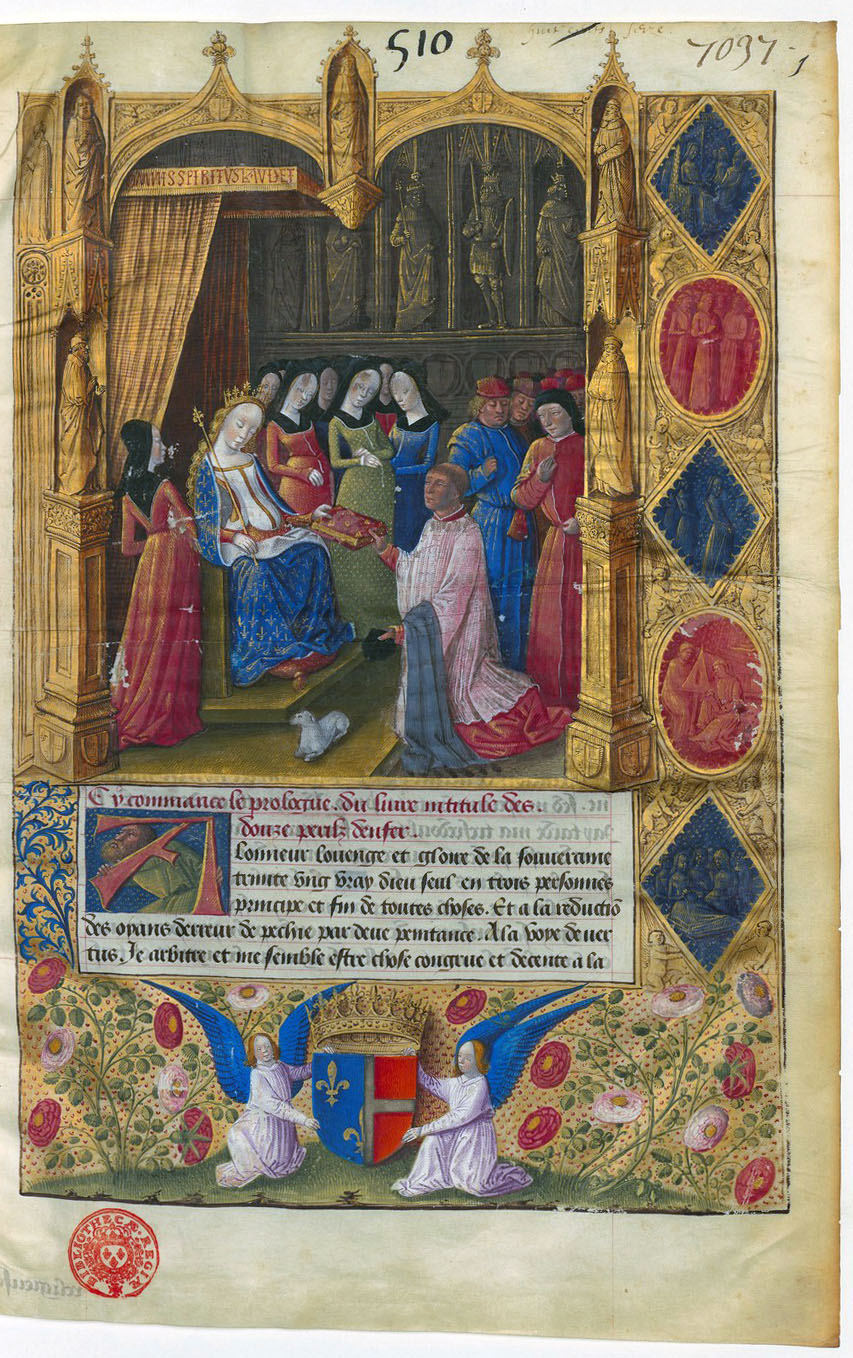 510
7097
1
OMNIS SPIRITUS LAUDET
Cy commance le prologue du livre intitule des
douze perilz denfer.
A lonneur louenge et gloire de la souveraine
trinite ung vray dieu seul en trois personnes
principe et fin de toutes choses. Et a la reductiō
des opans derreur de pechie par deue penitance. A la voye de ver
tus. Je arbitre et me semble estre chose congrue et decente a la
BIBLIOTHECÆ REGIÆ